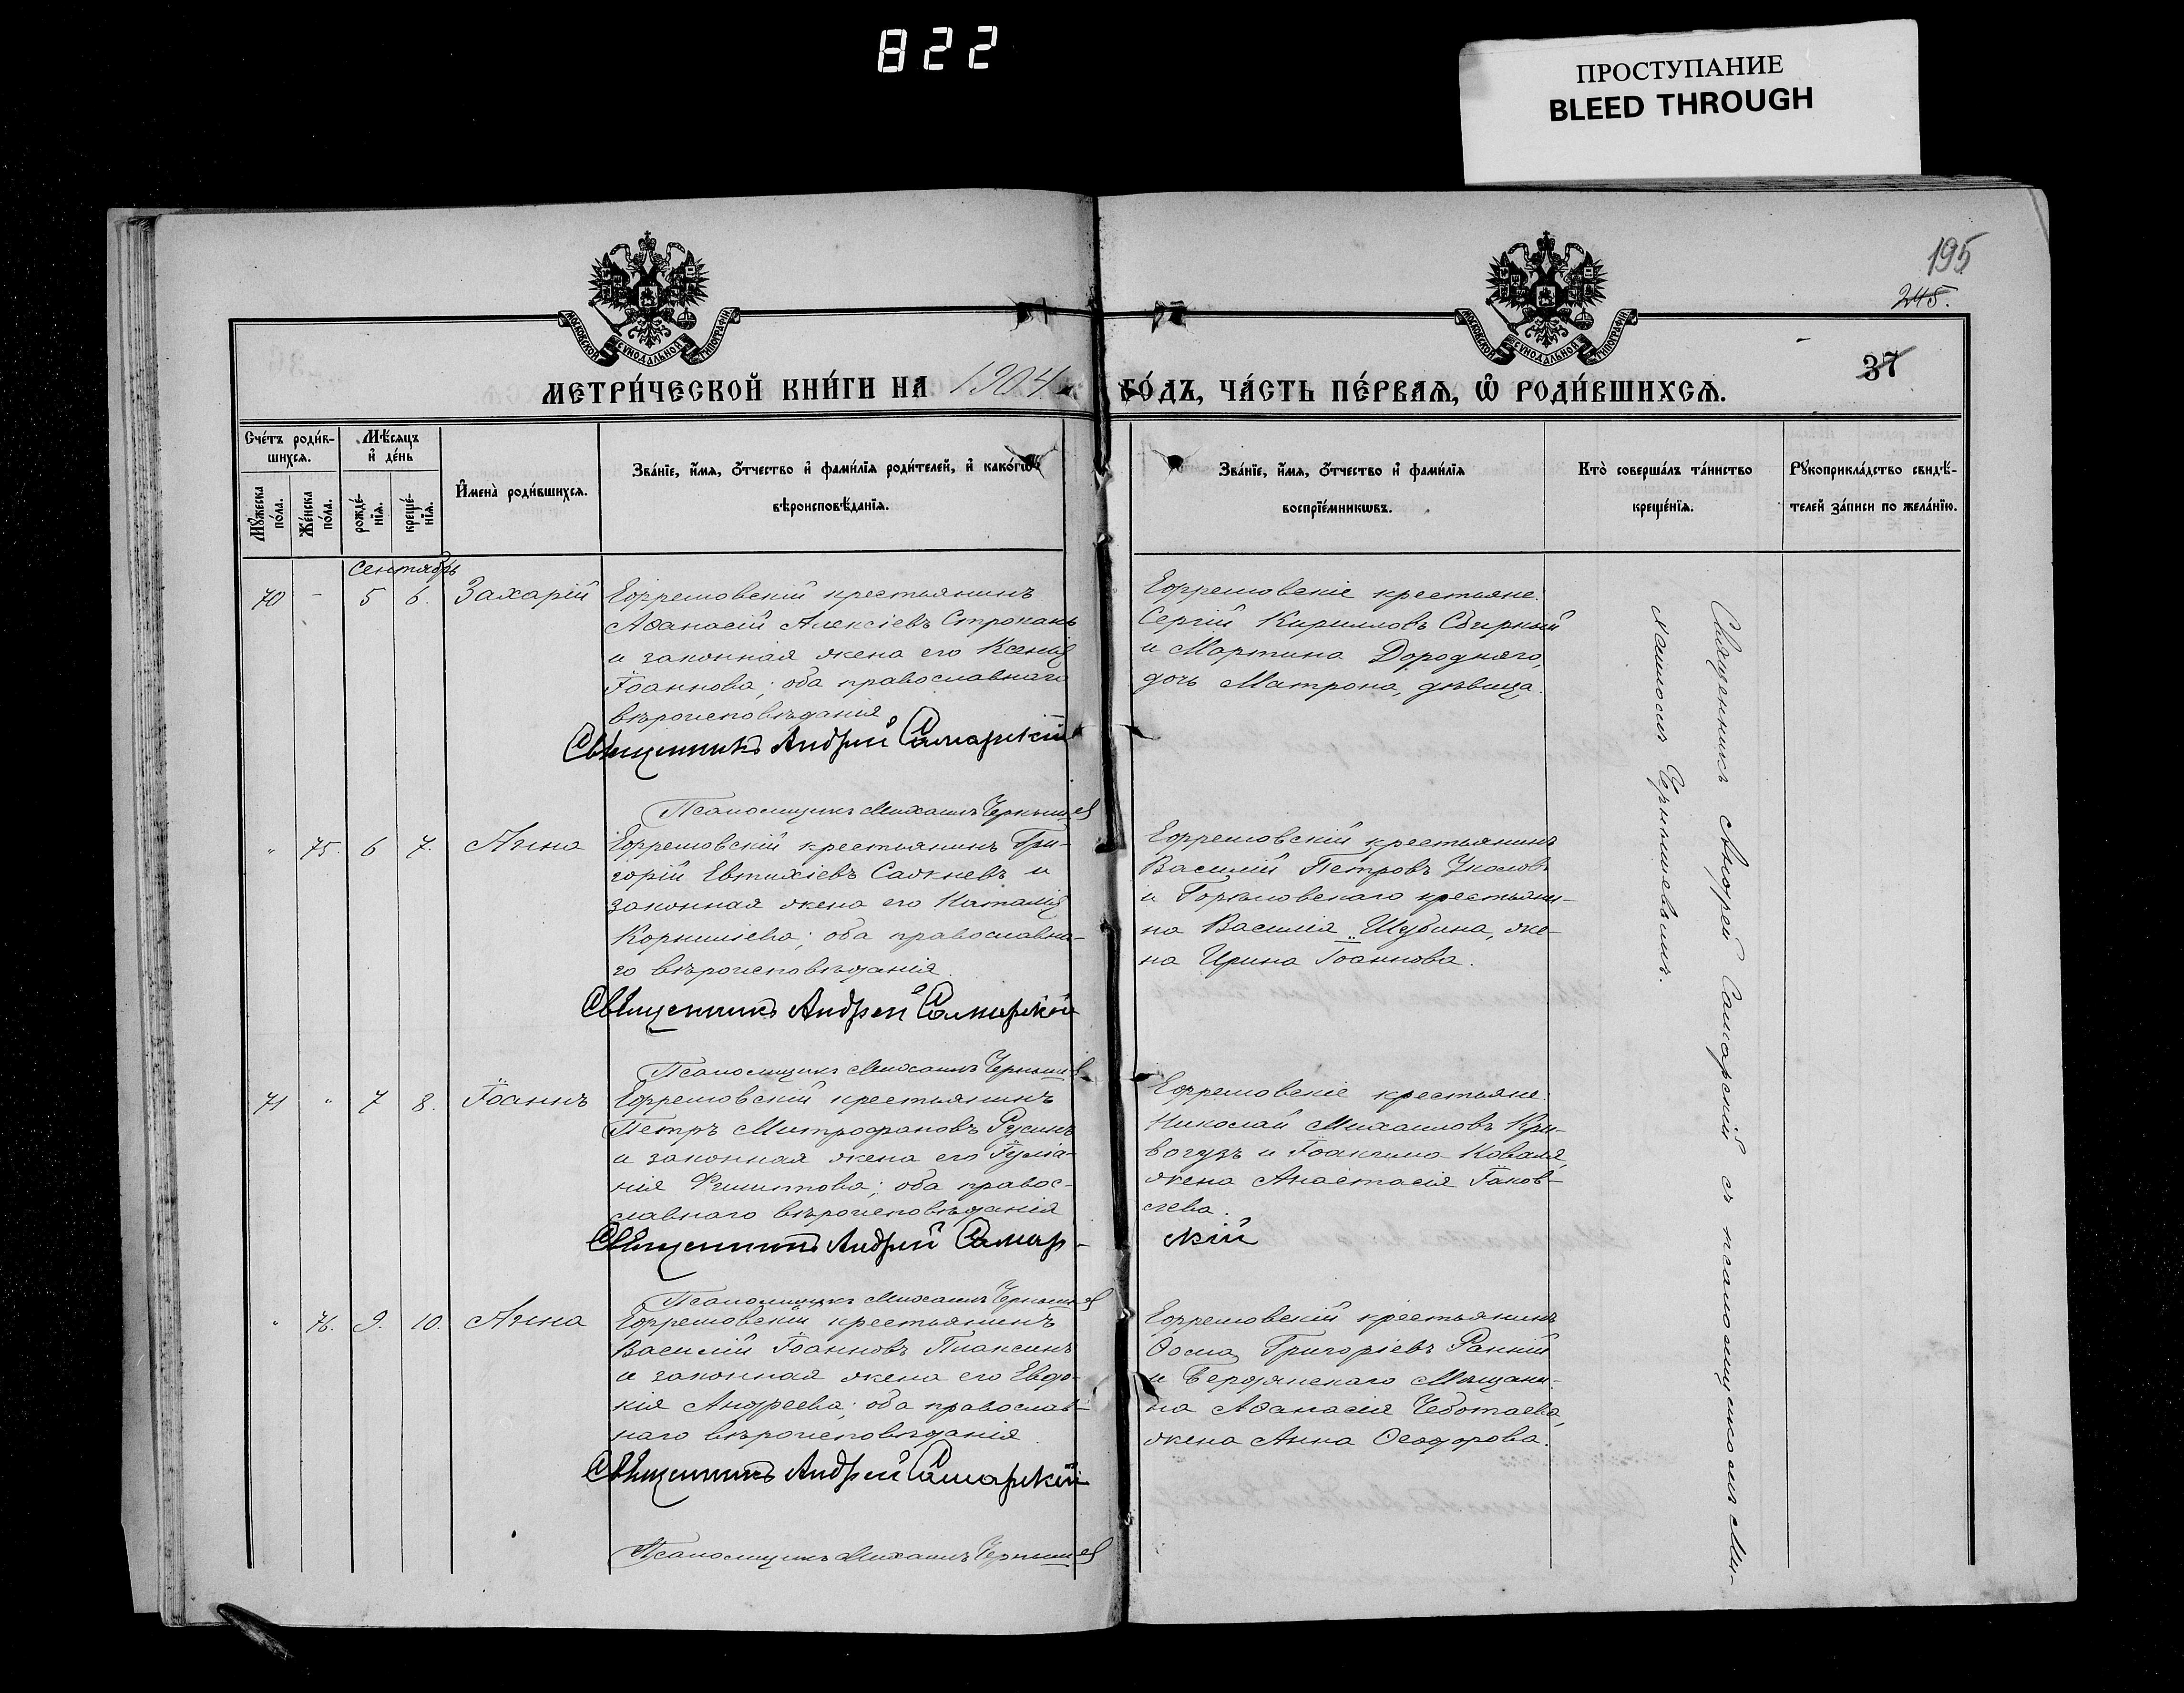 822
ПРОСТУПАНИЕ
BLEED THROUGH
195
245.
37
МОСКОВСКОЙ СѴНОДАЛЬНОЙ ТИПОГРАФІИ
МОСКОВСКОЙ СѴНОДАЛЬНОЙ ТИПОГРАФІИ
МЕТРИ́ЧЕСКОЙ КНИ́ГИ НА 1904 ГО́ДЪ, ЧА́СТЬ ПЕ́РВАѦ, Ѡ҆ РОДИ́ВШИХСѦ.
Сче́тъ роди́в-
шихсѧ.
Мꙋ́жеска по́ла.
Же́нска по́ла.
Мѣ́сѧцъ
и҆ де́нь
рожде́-
нїѧ.
креще́-
нїѧ.
И҆мена̀ роди́вшихсѧ.
Зва́нїе, и҆́мѧ, ѻ҆́тчество и҆ фами́лїѧ роди́телей, и҆ како́гѡ
вѣроисповѣ́данїѧ.
Зва́нїе, и҆́мѧ, ѻ҆́тчество и҆ фами́лїѧ
воспрїе́мникѡвъ.
Кто̀ соверша́лъ та́инство
креще́нїѧ.
Рꙋкоприкла́дство свидѣ́-
телей за́писи по жела́нїю.
Сентябрь
70 - 5 6. Захарій
Ефремовскій крестьянинъ
Аѳанасій Алексіевъ Строкань
и законная жена его Ксенія
Іоаннова; оба православнаго
вѣроисповѣданія
Священникъ Андрей Самарскій
Псаломщикъ Михаилъ Чернышев
Ефремовскіе крестьяне:
Сергій Кирилловъ
и Мартина Дороднаго,
дочь Матрона, дѣвица.
" 75. 6 7. Анна
Ефремовскій крестьянинъ Гри-
горій Евтихіевъ и
законная жена его Наталія
Корниліева; оба православна-
го вѣроисповѣданія.
Священникъ Андрей Самарскій
Псаломщикъ Михаилъ Чернышев
Ефремовскій крестьянинъ
Василій Петровъ
и крестьяни-
на Василія Шубина, же-
на Ирина Іоаннова.
71 " 7 8. Іоаннъ
Ефремовскій крестьянинъ
Петръ Митрофановъ Русинъ
и законная жена его Іуліа-
нія Филиппова; оба правос-
лавнаго вѣроисповѣданія
Священникъ Андрей Самар-
скій
Псаломщикъ Михаилъ Чернышев
Ефремовскіе крестьяне:
Николай Михаиловъ Кри-
вогузъ и Іоакима Коваля,
жена Анастасія Іаков-
лева.
" 76. 9. 10. Анна
Ефремовскій крестьянинъ
Василій Іоанновъ Плаксинъ
и законная жена его Евдо-
кія Андреева; оба православ-
наго вѣроисповѣданія.
Священникъ Андрей Самарскій
Псаломщикъ Михаилъ Чернышев
Ефремовскій крестьянинъ
Ѳома Григоріевъ Ранній
и Бердянскаго Мѣщани-
на Аѳанасія Чеботаева,
жена Анна Ѳеодорова.
Священникъ Андрей Самарскій съ псаломщикомъ Ми-
хаиломъ Чернышевымъ.